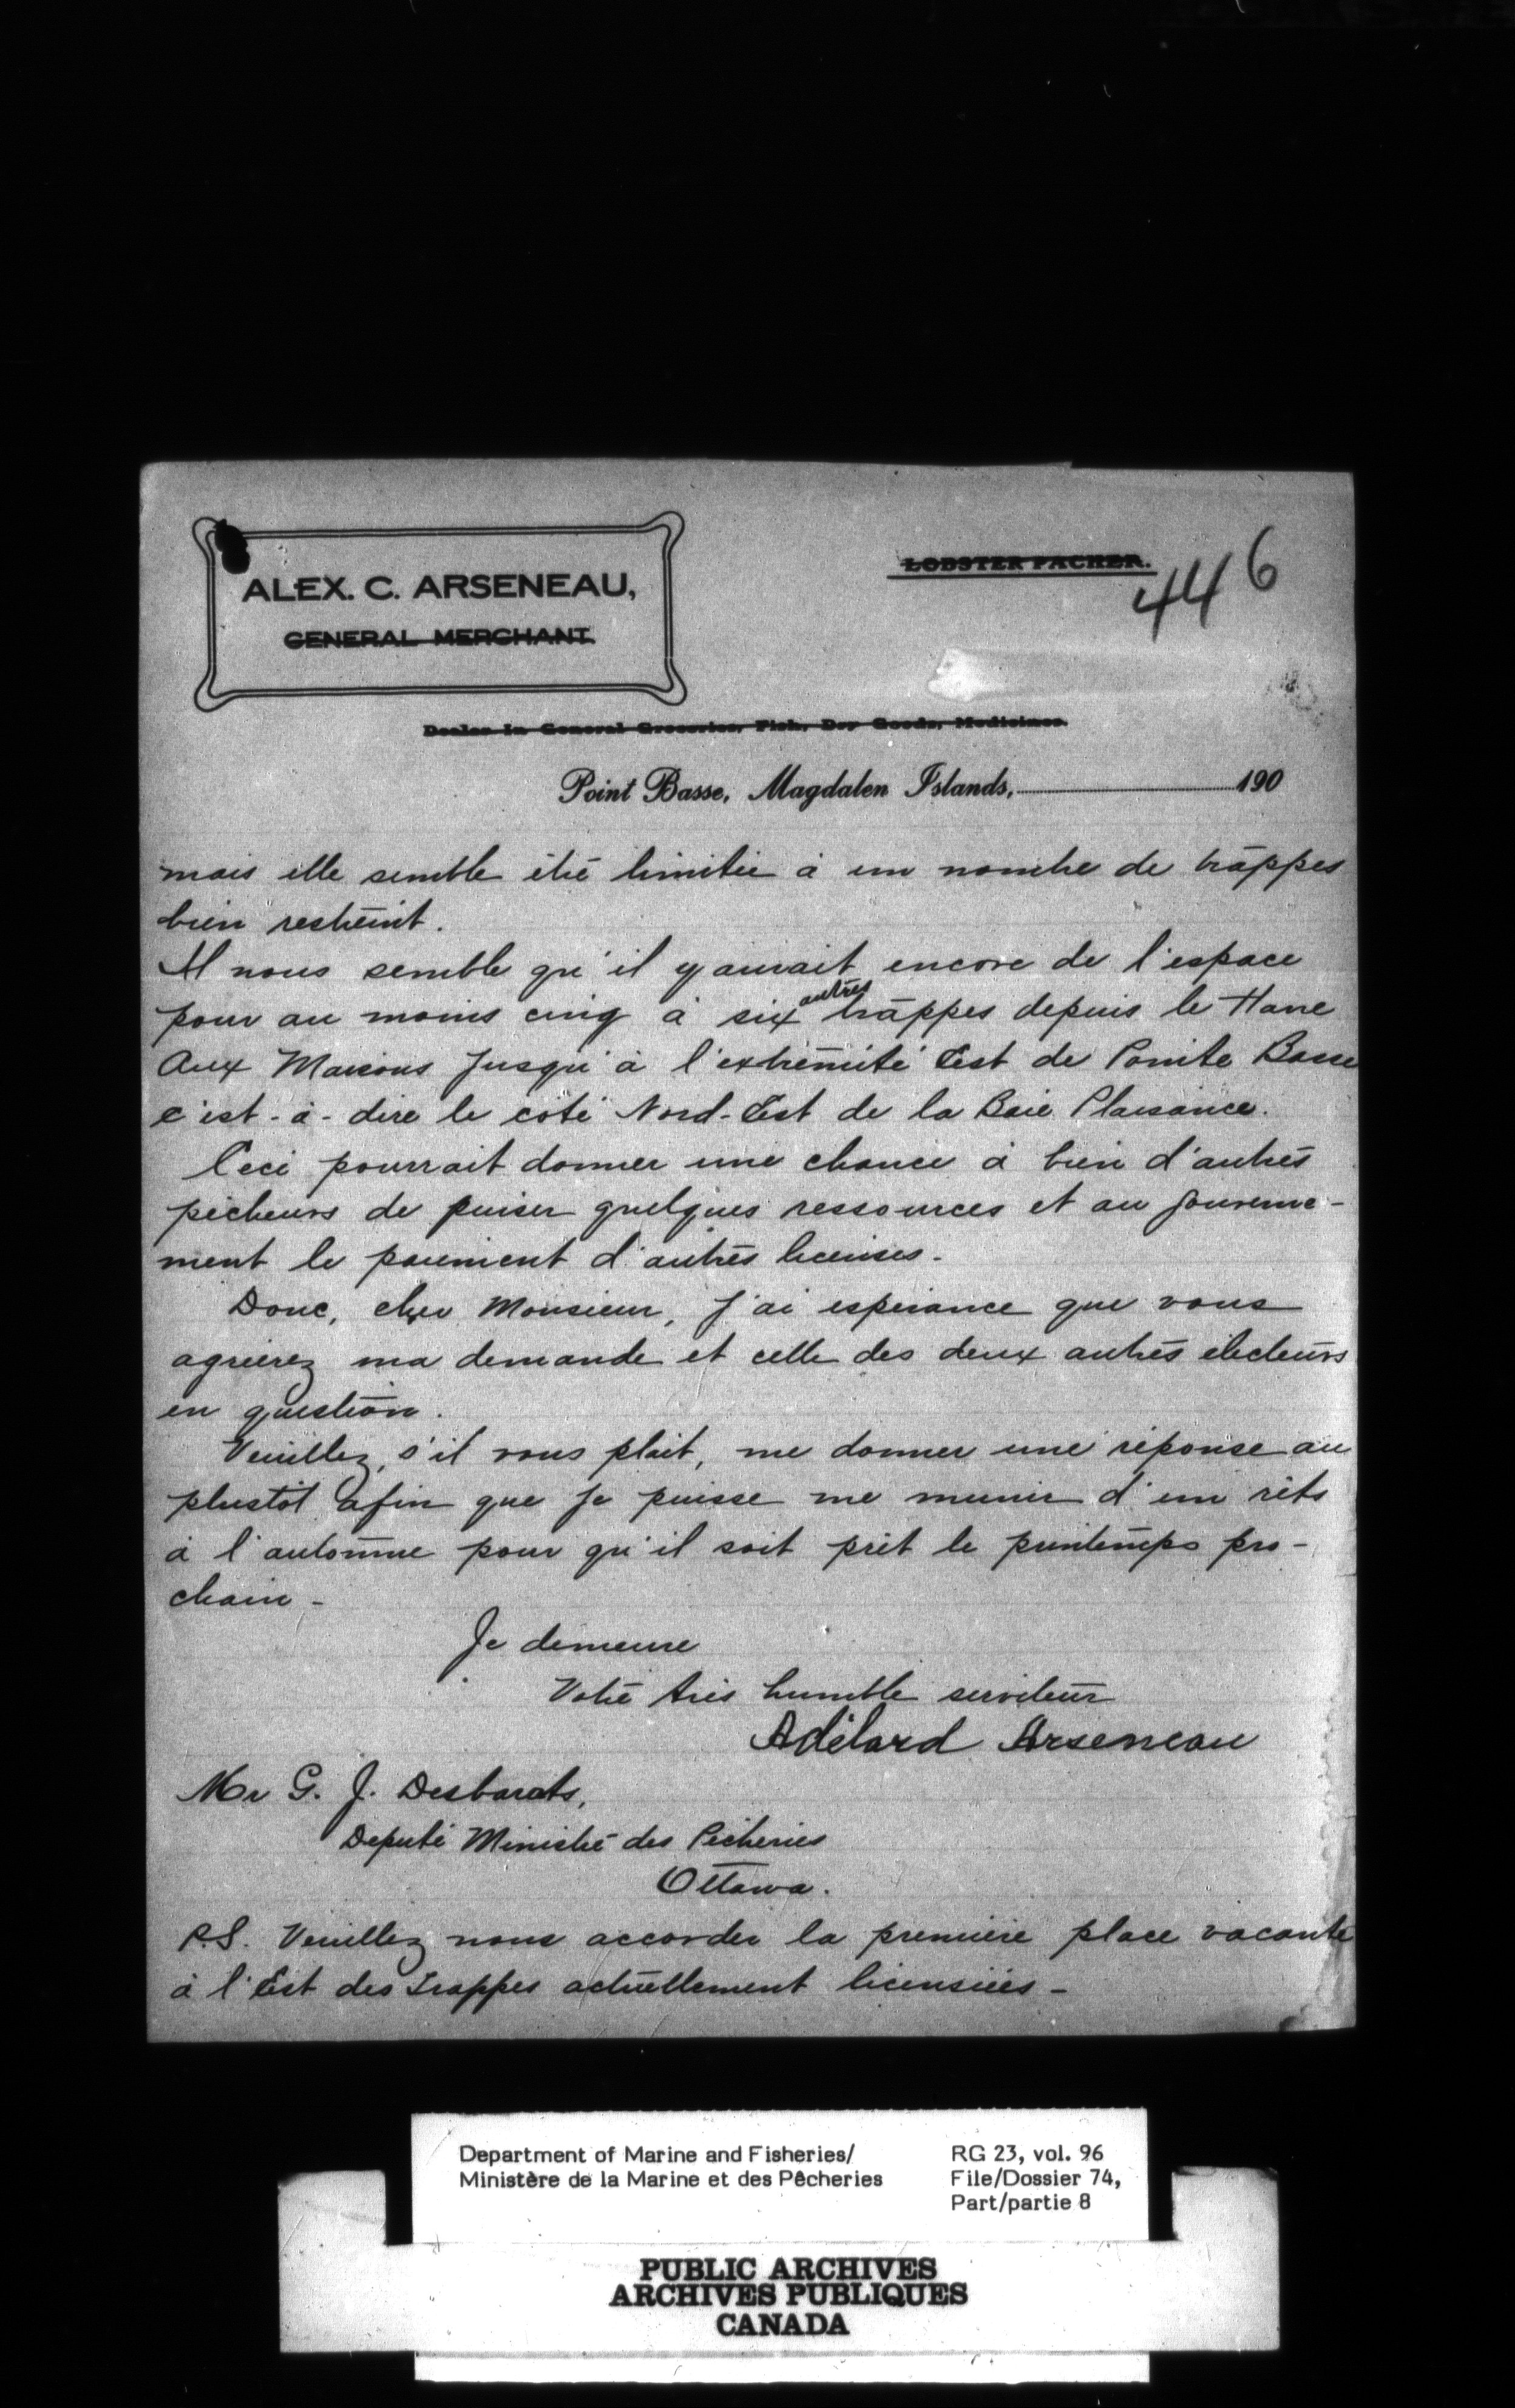 LOBSTER PACKER.
446
ALEX. C. ARSENEAU,
GENERAL MERCHANT.
Dealer in General Groceries, Fish, Dry Goods, Medicines.
Point Basse, Magdalen Islands, 190
mais elle semble être limitée à un nombre de trappes
bien restreint.
Il nous semble qu'il y aurait encore de l'espace
pour au moins cinq à six autres trappes depuis le Havre
Aux Maisons jusqu'à l'extrémité Est de Pointe Basse
c'est-à-dire le côté Nord-Est de la Baie Plaisance.
Ceci pourrait donner une chance à bien d'autres
pêcheurs de puiser quelques ressources et au gouverne-
ment le paiement d'autres licenses.
Donc, cher Monsieur, j'ai espérance que vous
agréerez ma demande et celle des deux autres électeurs
en question.
Veuillez, s'il vous plait, me donner une réponse au
plustôt afin que je puisse me munir d'un rêts
à l'automne pour qu'il soit prêt le printemps pro-
chain -
Je demeure
Votre très humble serviteur
Adélard Arseneau
Mr G. J. Desbarats,
Deputé Ministre des Pêcheries
Ottawa.
P.S. Veuillez nous accorder la première place vacante
à l'Est des Trappes actuellement licensiées -
Department of Marine and Fisheries/
Ministère de la Marine et des Pêcheries
RG 23, vol. 96
File/Dossier 74,
Part/partie 8
PUBLIC ARCHIVES
ARCHIVES PUBLIQUES
CANADA